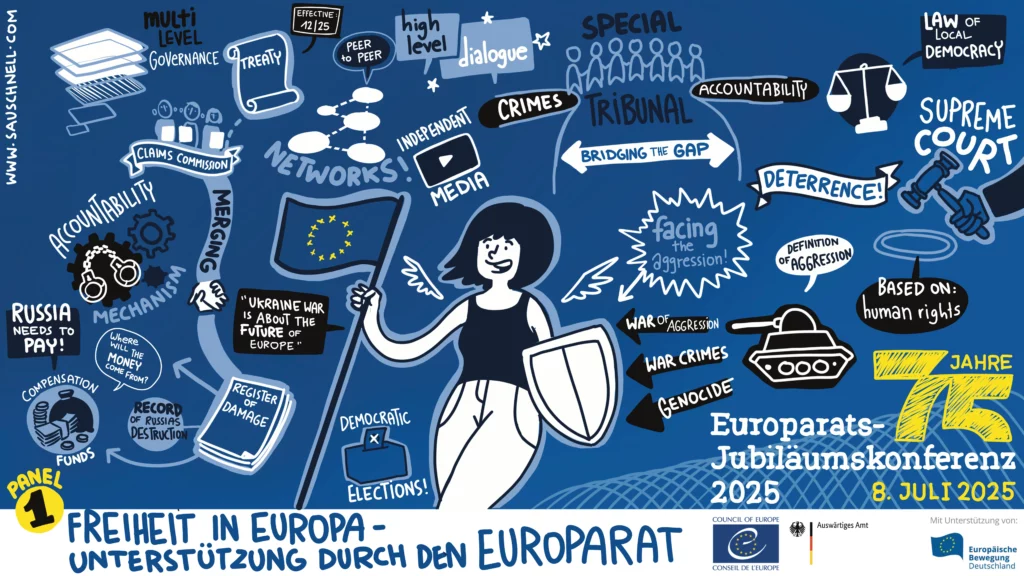 WWW.SAUSCHNELL.COM
MULTI
LEVEL
GOVERNANCE
TREATY
EFFECTIVE
12/25
PEER
to PEER
high
level
dialogue
NETWORKS!
INDEPENDENT
MEDIA
SPECIAL
TRIBUNAL
CRIMES
ACCOUNTABILITY
BRIDGING THE GAP
LAW OF
LOCAL
DEMOCRACY
SUPREME
COURT
DETERRENCE!
CLAIMS COMMISSION
MERGING
ACCOUNTABILITY
MECHANISM
RUSSIA
NEEDS TO
PAY!
Where
WILL THE
MONEY
COME FROM?
COMPENSATION
FUNDS
RECORD
OF RUSSIAS
DESTRUCTION
REGISTER
OF
DAMAGE
"UKRAINE WAR
IS ABOUT THE
FUTURE OF
EUROPE"
DEMOCRATIC
ELECTIONS!
facing
the
aggression!
DEFINITION
OF AGGRESSION
BASED ON:
human rights
WAR OF AGGRESSION
WAR CRIMES
GENOCIDE
75 JAHRE
Europarats-
Jubiläumskonferenz
2025
8. JULI 2025
PANEL
1
FREIHEIT IN EUROPA -
UNTERSTÜTZUNG DURCH DEN EUROPARAT
COUNCIL OF EUROPE
CONSEIL DE L'EUROPE
Auswärtiges Amt
Mit Unterstützung von:
Europäische
Bewegung
Deutschland